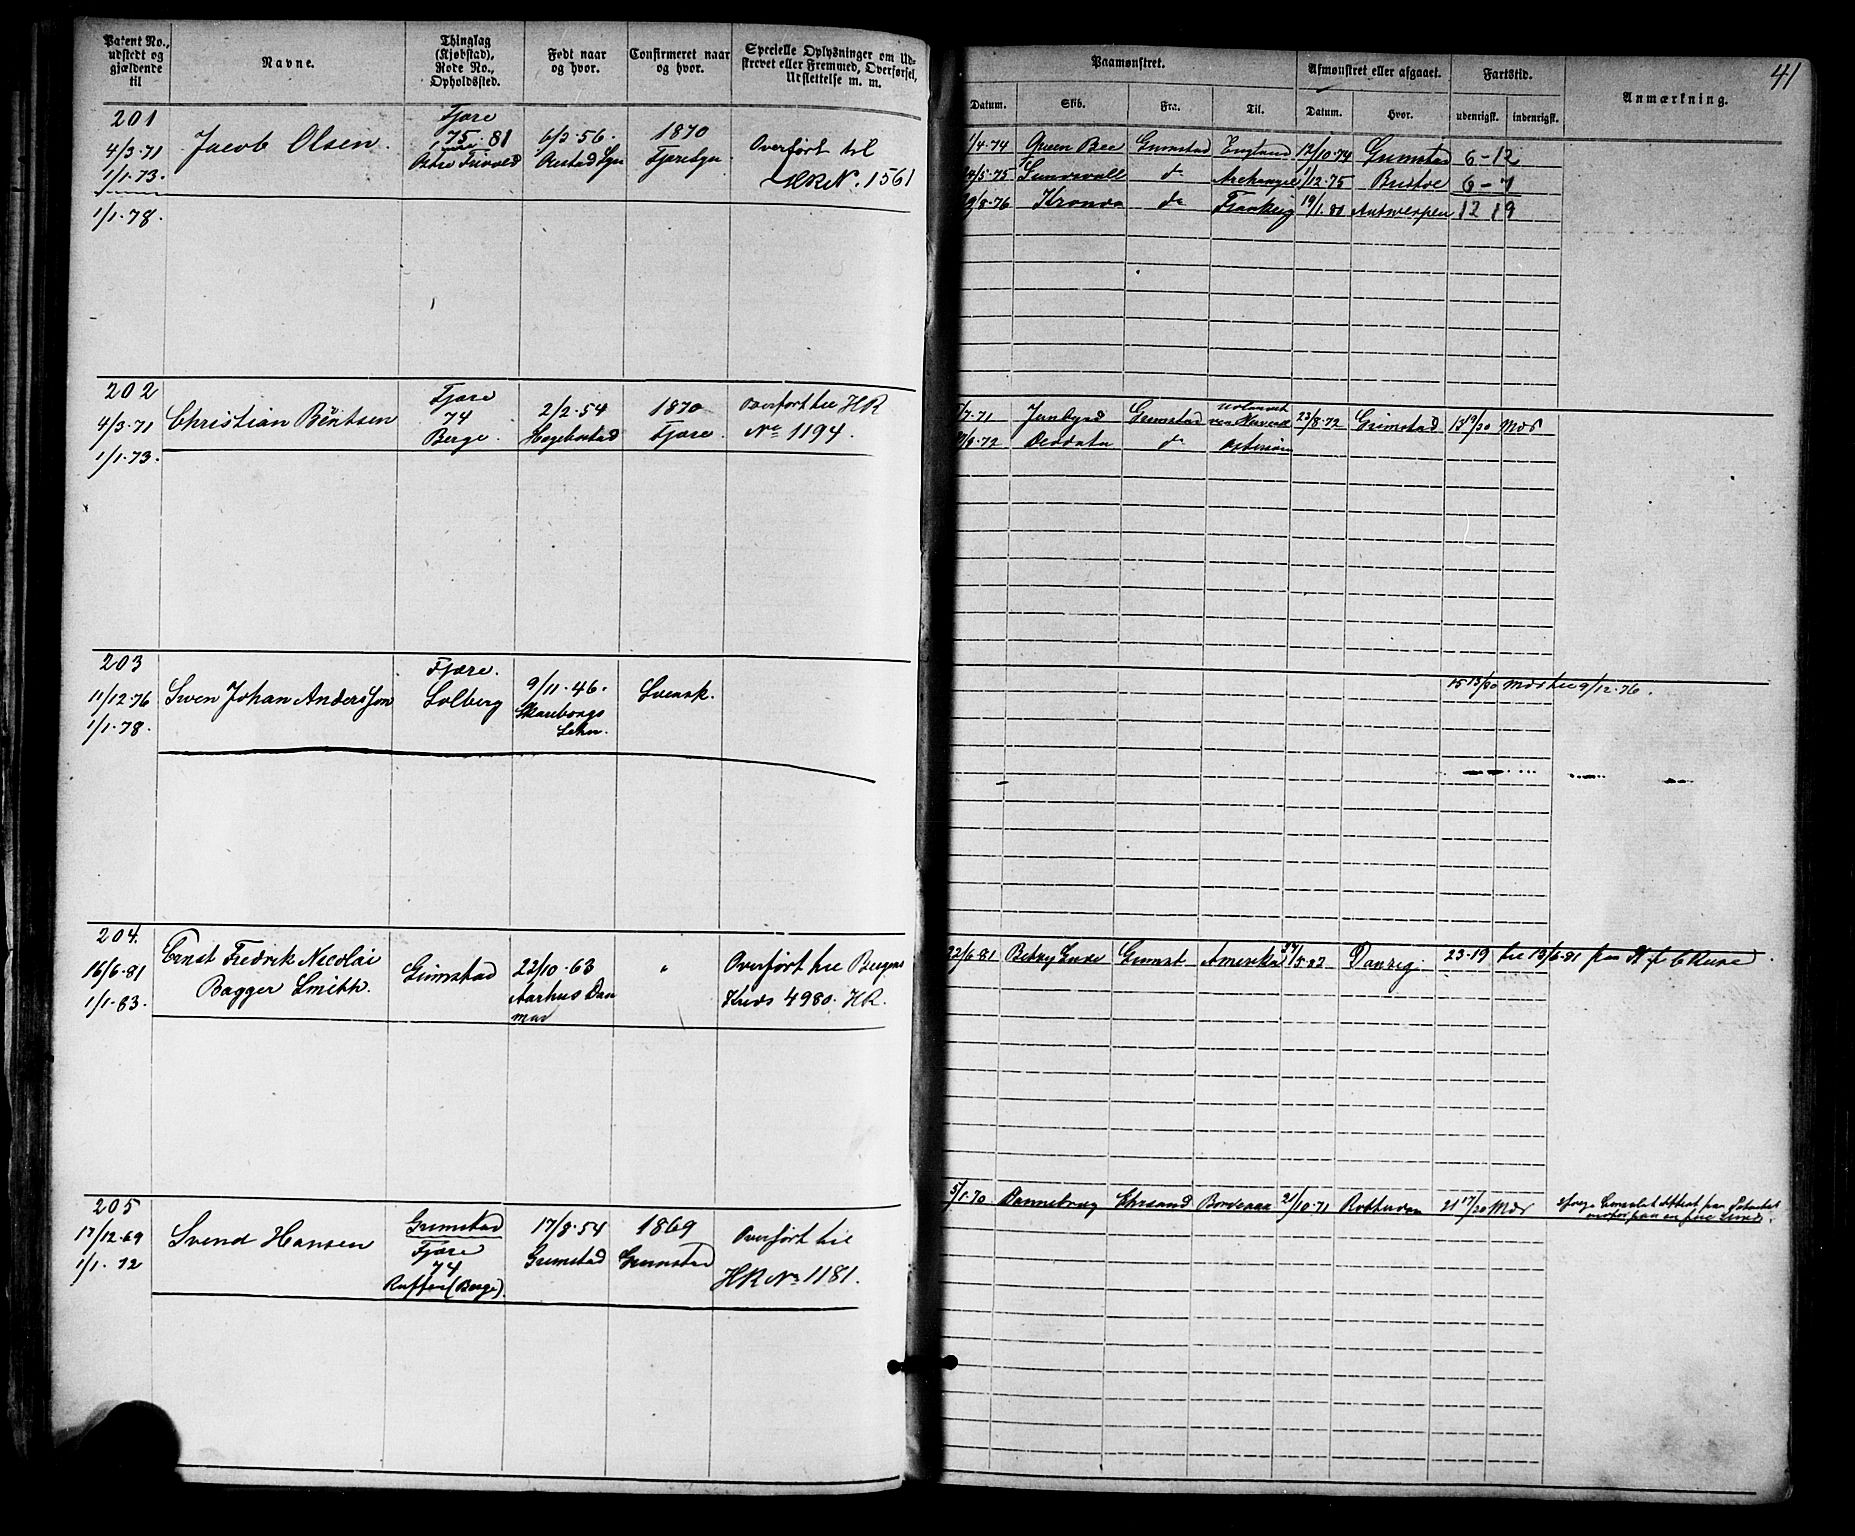 Patent No., udstedt og gjældende til
Navne.
Thinglag (Kjøbstad), Rode No., Opholdssted.
Født naar og hvor.
Confirmeret naar og hvor.
Specielle Oplysninger om Udskrevet eller Fremmed, Overførsel, Udslettelse m. m.
Paamønstret.
Afmønstret eller afgaaet.
Fartstid.
Anmærkning.
41
Datum.
Skib.
Fra.
Til.
Datum.
Hvor.
udenrigsk.
indenrigsk.
201
4/3·71
1/1·73.
1/1·78.
Jacob Olsen.
Fjære
75·81
6/3·56.
1870
Overført til
HR N. 1561
1/4·74 Queen Bee Grimstad England 12/10·74 Grimstad 6-12
/5·75 Sundsvall do Archangel 1/12·75 Bristol 6-7
/8·76 Kronos do 19/1·81 Antwerpen 12 19
202
4/3·71
1/1·73.
Christian Bentsen
Fjære
74
Berge.
2/2·54
Hegebostad
1870
Fjære.
Overført til HR
No 1194.
/7·71 Grimstad 23/8·72 Grimstad 13 19/30 Mdr
/9·72 Deodata do
203
11/12·76
1/1·78.
Swen Johan Andersson
Fjære.
Solberg
9/11·46.
Skareborgs
Lehn.
Svensk.
15 13/30 Mdr til 9/12·76.
204.
16/6·81
1/1·83.
Ernst Fredrik Nicolai
Bagger Smith.
Grimstad
22/10·63
Aarhus Dan
mark
"
Overført til Bergens
Kreds 4980. HR.
22/6·81 Betzy Grimst Amerika /5·82 Danzig 23-19 til 13/6·81
205
17/12·69
1/1·72
Svend Hansen
Grimstad
Fjære
74
(Berge).
17/8·54
Grimstad
1869
Grimstad
Overført til
HR No 1181.
5/1·70 Dannebrog Chrsand Bordeaux 21/10·71 Rotterdam 21 17/30 Mdr